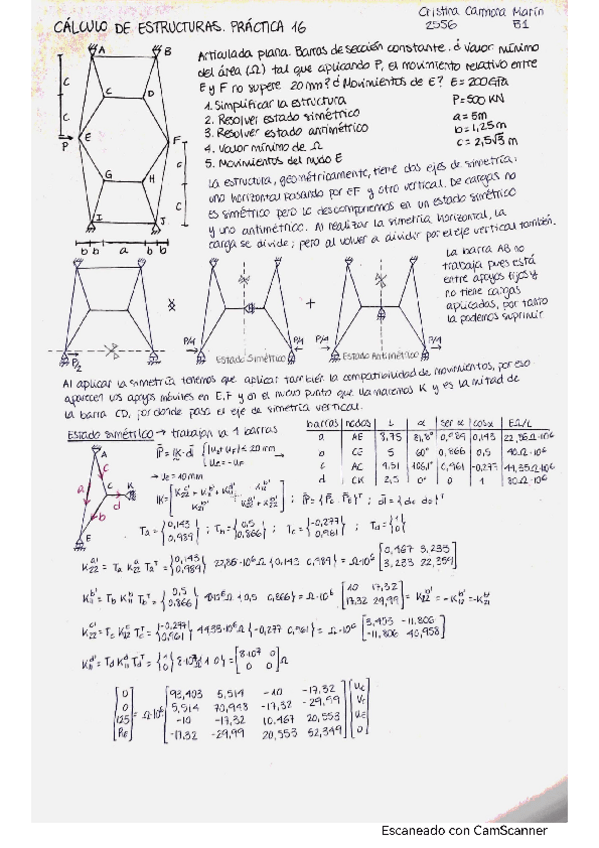 CÁLCULO DE ESTRUCTURAS. PRÁCTICA 16
Cristina Carmona Marín
2556 B1
Articulada plana. Barras de sección constante. ¿Valor mínimo
del área (Ω) tal que aplicando P, el movimiento relativo entre
E y F no supere 20mm? ¿Movimientos de E? E = 200GPa
1. Simplificar la estructura
P=500 KN
2. Resolver estado simétrico
a = 5m
3. Resolver estado antimétrico
b = 1,25m
4. Valor mínimo de Ω
c = 2,5√3 m
5. Movimientos del nudo E
A B
C D
P E F
G H
I J
c c c c
b b a b b
La estructura, geométricamente, tiene dos ejes de simetría:
uno horizontal pasando por EF y otro vertical. De cargas no
es simétrico pero lo descomponemos en un estado simétrico
y uno antimétrico. Al realizar la simetría horizontal, la
carga se divide; pero al volver a dividir por el eje vertical también.
La barra AB no
trabaja pues está
entre apoyos fijos y
no tiene cargas
aplicadas, por tanto
la podemos suprimir
P/2
+
P/4 Estado Simétrico P/4
P/4 Estado Antimétrico P/4
Al aplicar la simetría tenemos que aplicar también la compatibilidad de movimientos, por eso
aparecen los apoyos móviles en E,F y en el nuevo punto que llamaremos K y es la mitad de
la barra CD, por donde pasa el eje de simetría vertical.
Estado simétrico → trabajan las 4 barras
barras nodos L α sen α cosα EΩ/L
a AE 8,75 81,8° 0,989 0,143 22,86Ω·10⁶
b CE 5 60° 0,866 0,5 40Ω·10⁶
c AC 4,51 106,1° 0,961 -0,277 44,35Ω·10⁶
d CK 2,5 0° 0 1 80Ω·10⁶
A C K E
a b c d
Ta = {0,143 0,989} ; Tb = {0,5 0,866} ; Tc = {-0,277 0,961} ; Td = {1 0}
[0,467 3,233
3,233 22,359]
[10 17,32
17,32 29,99]
[3,453 -11,806
-11,806 40,958]
[8·10⁷ 0
0 0] Ω
[0 0 125 RE] = Ω·10⁶
[93,403 5,514 -10 -17,32
5,514 70,948 -17,32 -29,99
-10 -17,32 10,467 20,553
-17,32 -29,99 20,553 52,349]
[Uc Vc UE 0]
Escaneado con CamScanner